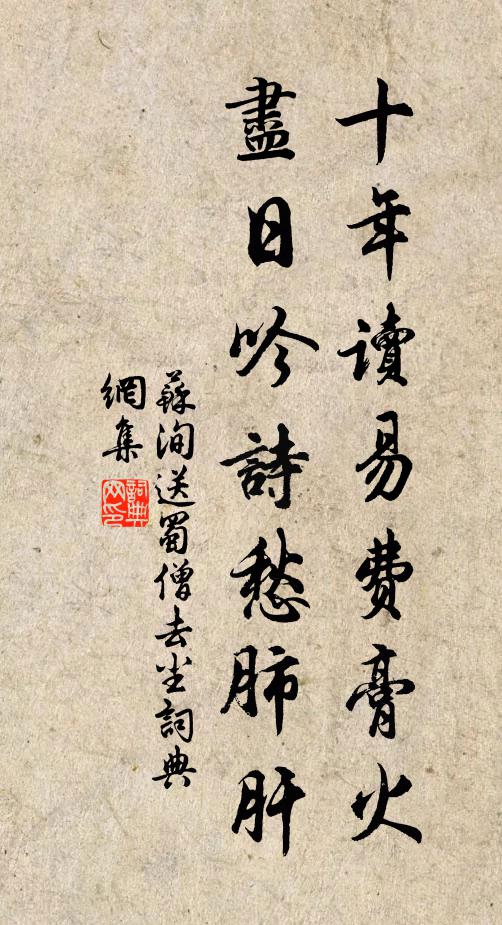 十年讀易費膏火
盡日吟詩愁肺肝
蘇洵送蜀僧去尘詞典
網集
詞典网印